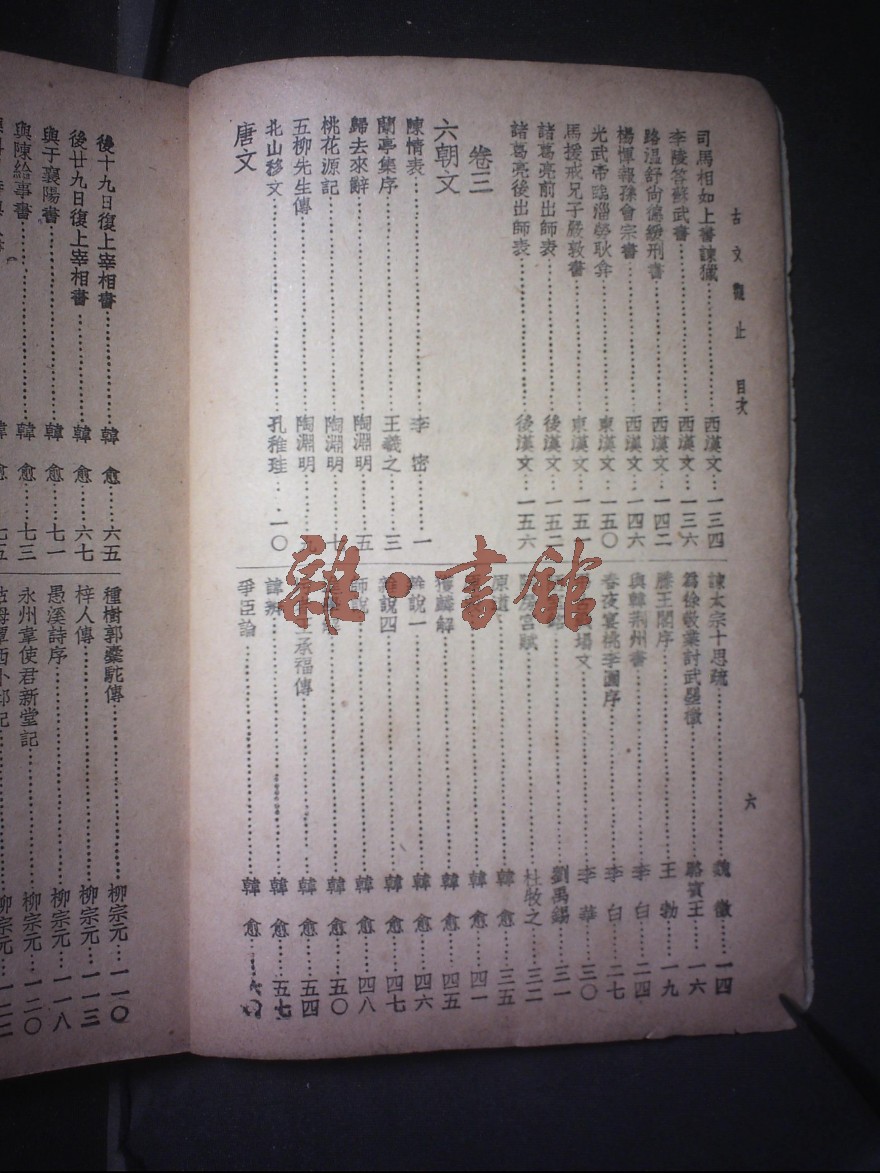 古文觀止 目次
六
司馬相如上書諫獵……西漢文…一三四
李陵答蘇武書……西漢文…一三六
路溫舒尚德緩刑書……西漢文…一四二
楊惲報孫會宗書……西漢文…一四六
光武帝臨淄勞耿弇……東漢文…一五〇
馬援戒兄子嚴敦書……東漢文…一五一
諸葛亮前出師表……後漢文…一五二
諸葛亮後出師表……後漢文…一五六
卷三
六朝文
陳情表……李密……一
蘭亭集序……王羲之……三
歸去來辭……陶淵明……五
桃花源記……陶淵明……七
五柳先生傳……陶淵明……九
北山移文……孔稚珪……一〇
唐文
諫太宗十思疏……魏徵…一四
爲徐敬業討武曌檄……駱賓王…一六
滕王閣序……王勃…一九
與韓荆州書……李白…二四
春夜宴桃李園序……李白…二七
場文……李華…三〇
劉禹錫…三一
宮賦……杜牧之…三二
原道……韓愈…三五
韓愈…四一
獲麟解……韓愈…四五
雜說一……韓愈…四六
雜說四……韓愈…四七
師說……韓愈…四八
韓愈…五〇
承福傳……韓愈…五四
諱辯……韓愈…五七
爭臣論……韓愈
後十九日復上宰相書……韓愈…六五
後廿九日復上宰相書……韓愈…六七
與于襄陽書……韓愈…七一
與陳給事書……韓愈…七三
韓愈…七五
種樹郭橐駝傳……柳宗元…一一〇
梓人傳……柳宗元…一一三
愚溪詩序……柳宗元…一一八
永州韋使君新堂記……柳宗元…一二〇
柳宗元…一二二
雜·書館